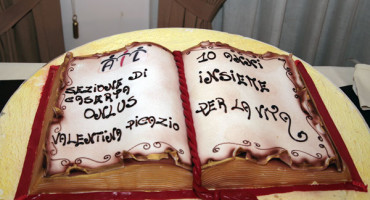 AIL
SEZIONE DI
CASERTA
ONLUS
VALENTINA PICAZIO
10 ANNI
INSIEME
PER LA VITA